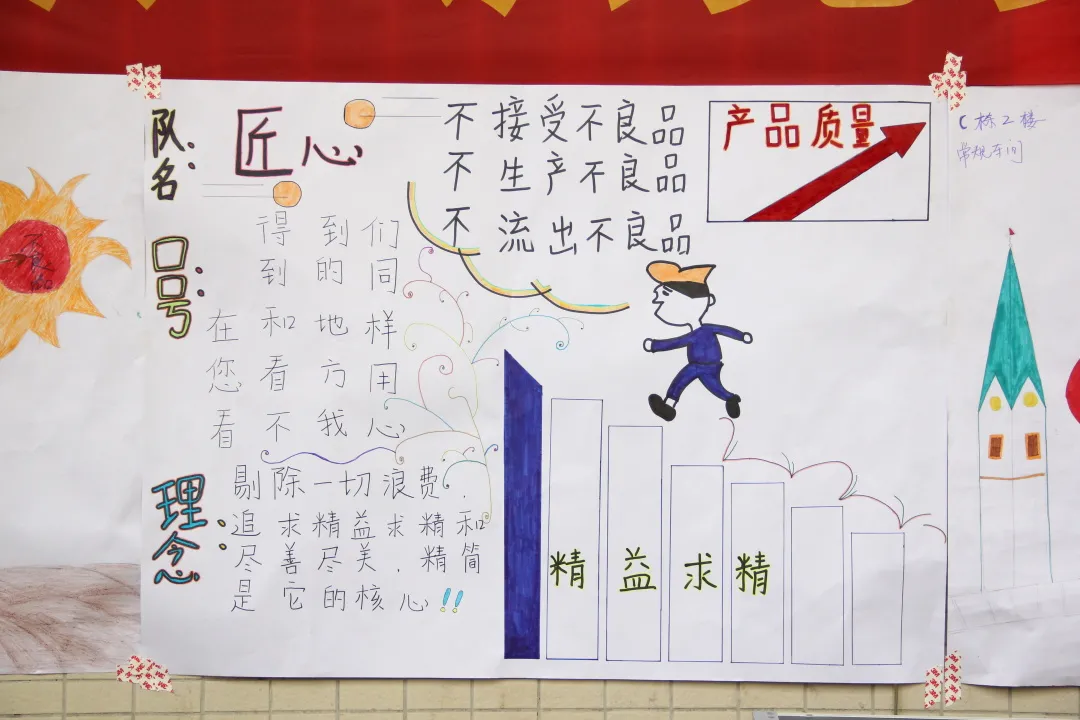 队名:
匠心
不接受不良品
不生产不良品
不流出不良品
产品质量
口号:
在您看
得到和看不
到的地方我
们同样用心
理念:
剔除一切浪费.
追求精益求精和
尽善尽美.精简
是它的核心!!
精益求精
C栋2楼
常规车间